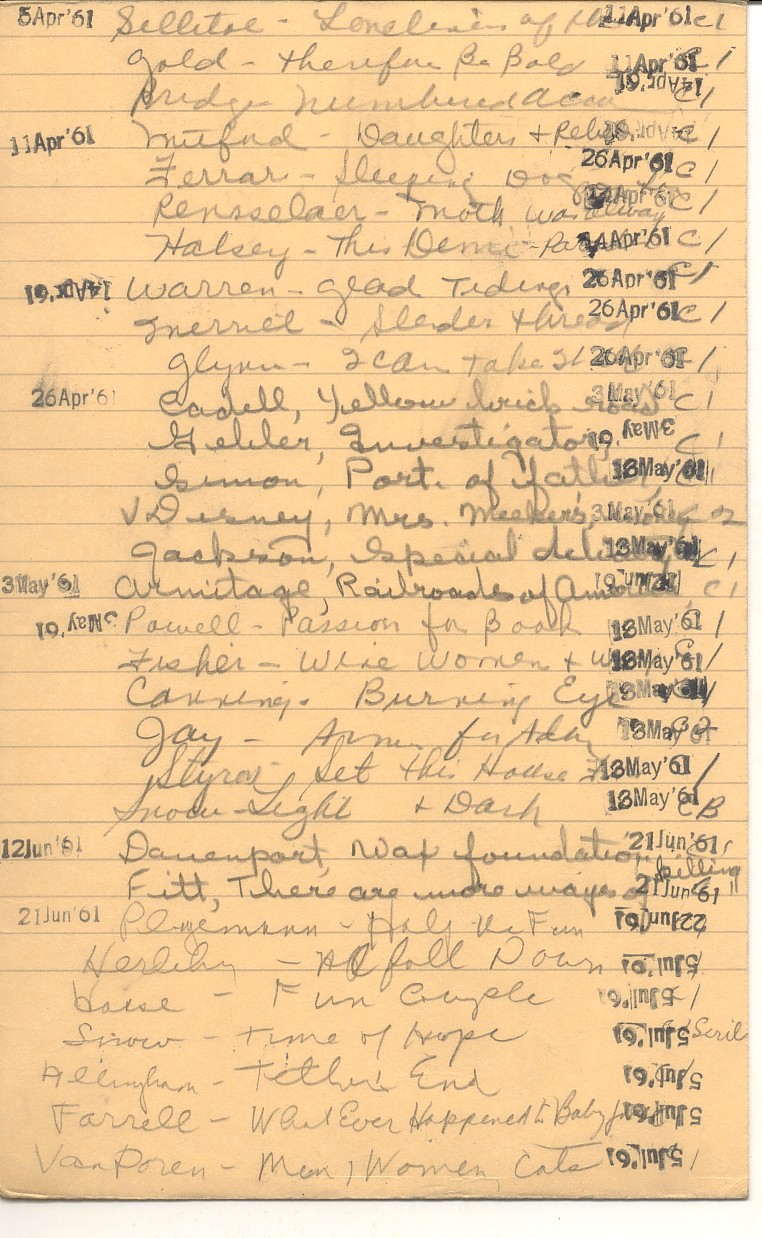 5Apr'61 Sillitoe - Loneliness of the 11Apr'61 C1
Gold - Therefore Be Bold 11Apr'61 C1
Bridge - Numbered Acco 14Apr'61 C1
11Apr'61 Mitford - Daughters + Rebels 14Apr'61 C1
Ferrar - Sleeping Dogs 26Apr'61 C1
Rensselaer - Moth was alway 14Apr'61 C1
Halsey - This Demi-Pa 14Apr'61 C1
14Apr'61 Warren - Glad Tidings 26Apr'61 C1
Merriel - Slender thread 26Apr'61 C1
Glynn - I Can Take It 26Apr'61 C1
26Apr'61 Cadell, Yellow brick road 3May'61 C1
Gehler, Investigators, 3May'61 C1
Simon, Port. of father 13May'61 C1
V Disney, Mrs. Meeker's money 3May'61 02
Jackson, Special delivery 13May'61 C1
3May'61 Armitage, Railroads of America, C1
3May'61 Powell - Passion for Books 13May'61 1
Fisher - Wine Women + W 13May'61 C1
Canning. Burning Eye 13May'61 C1
Jay - Arms for Ado 13May'61
Styron - Set this House F 13May'61 1
Snow - Light + Dark 13May'61 CB
12Jun'61 Davenport, Wax foundation 21Jun'61
killing
Fitt, There are more ways of 21Jun'61
21Jun'61 Plagemann - Half the Fun 22Jun'61
Herlihy - All fall Down 5Jul'61
Hasse - Fun Couple 5Jul'61 1
Snow - Time of Hope 5Jul'61 Scrib
Allingham - Tether's End 5Jul'61
Farrell - What Ever Happened to Baby Jane 5Jul'61
Van Doren - Men, Women, Cats 5Jul'61 1